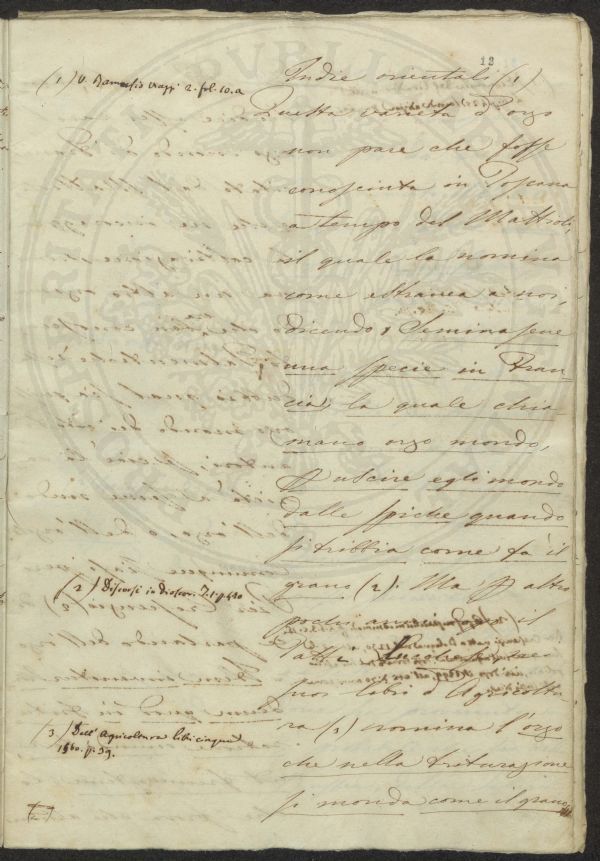 12
(1) V. Ramusio viaggi 2. fol. 10. a
Indie orientali (1)
Questa varietà d'orzo
non pare che fosse
conosciuta in Toscana
a tempo del Mattioli,
il quale la nomina
come estranea a noi,
dicendo, Seminasene
una specie in Fran-
cia, la quale chia
mano orzo mondo,
p uscire egli mondo
dalle spiche quando
si tribbia come fa il
(2) Discorsi in Dioscor. T. 1. p. 410
grano (2). Ma p altro
il
Pall
suoi libri d'Agricoltu
(3) Dell'Agricoltura libri cinque
1560. p. 39.
ra (3) nomina l'orzo
che nella triturazione
si monda come il grano